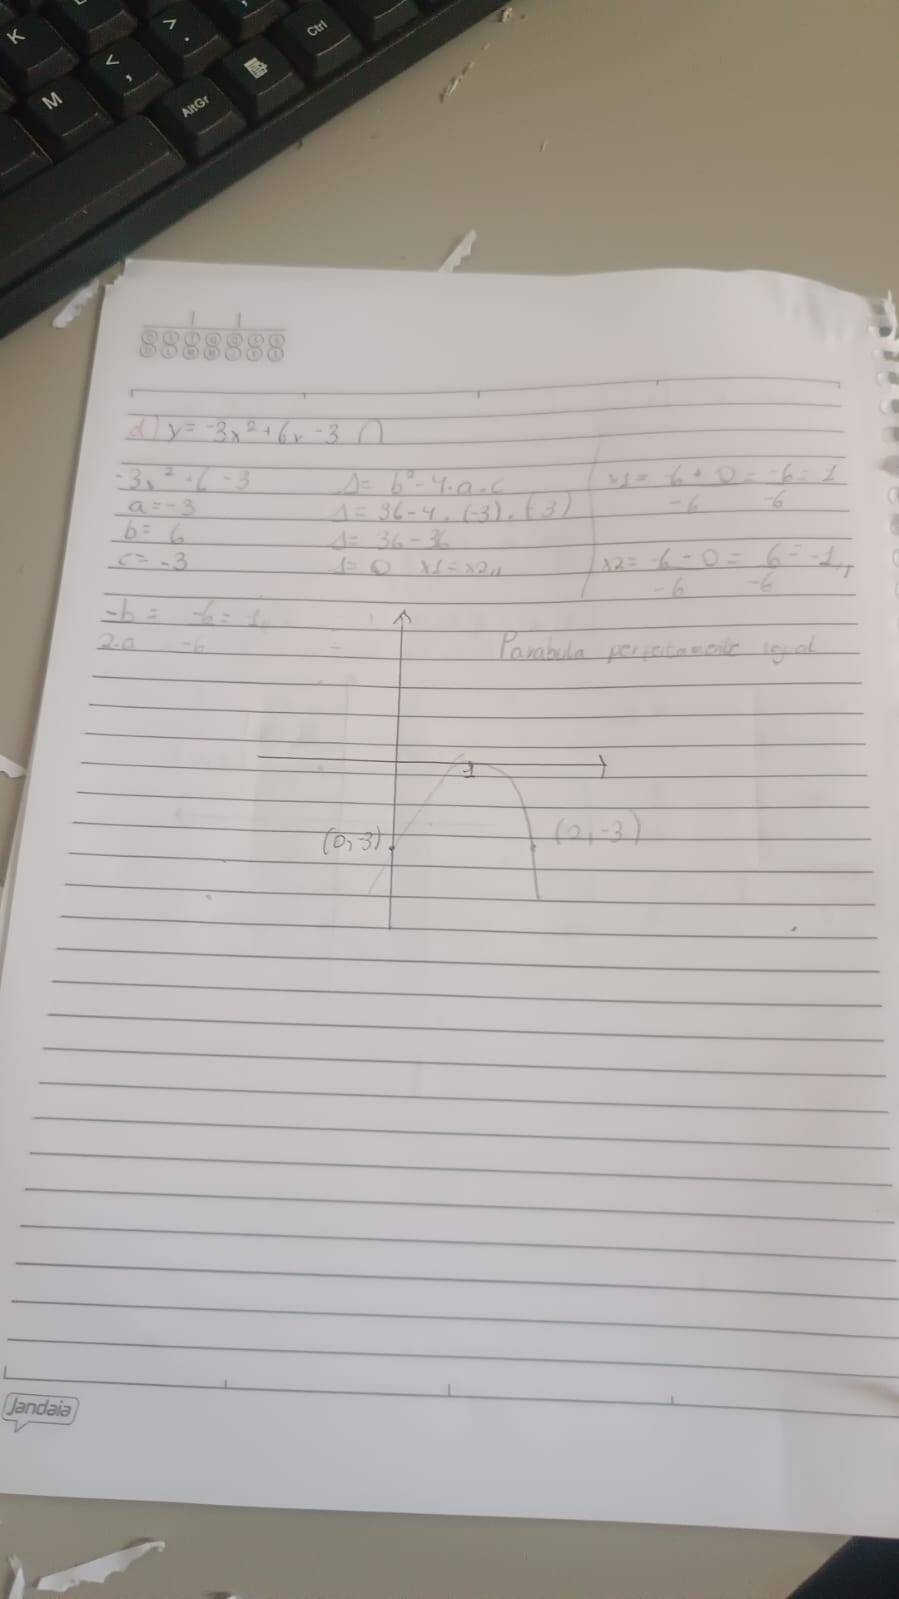 K
M
<
,
>
.
AltGr
Ctrl
d) y= -3x²+6x -3 ∩
-3x²+6 -3
a= -3
b= 6
c= -3
Δ= b²-4.a.c
Δ= 36-4.(-3).(-3)
Δ= 36-36
Δ= 0 x1=x2,,
x1= -6+0 = -6 = 1
-6 -6
x2= -6-0 = 6 = -1,,
-6 -6
-b = -6 = 1,,
2.a -6
Parabula perfeitamente igual
1
(0,-3)
(0,-3)
Jandaia